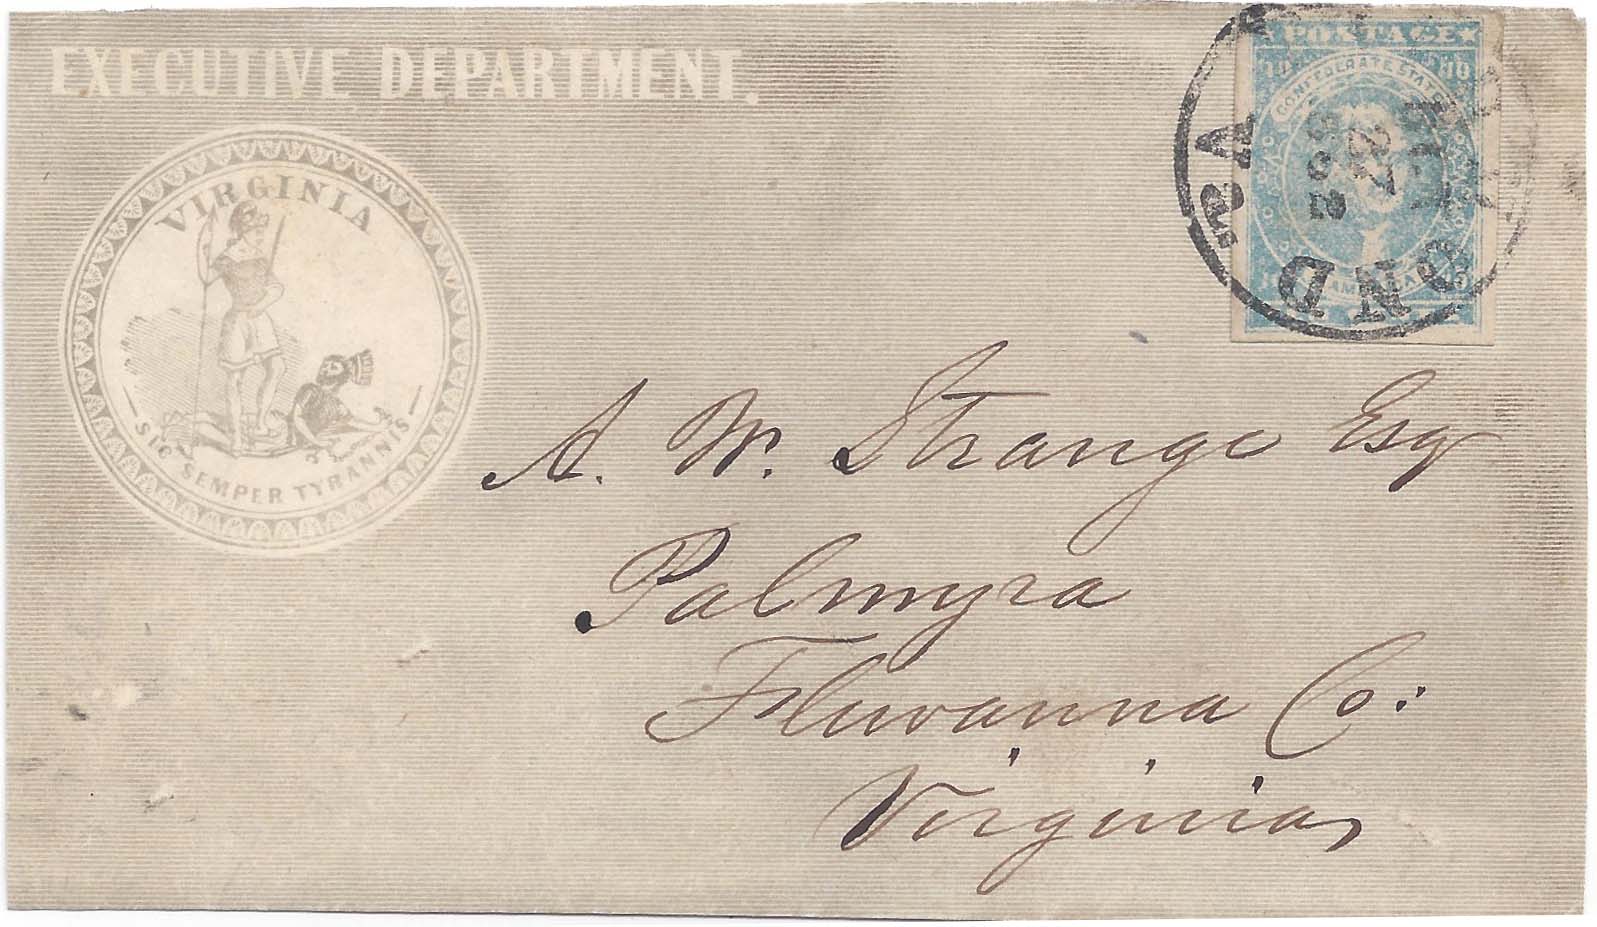 EXECUTIVE DEPARTMENT.
VIRGINIA
SIC SEMPER TYRANNIS
POSTAGE
10 10
CONFEDERATE STATES
OND
VA.
27
A. W. Strange Esq
Palmyra
Fluvanna Co:
Virginia